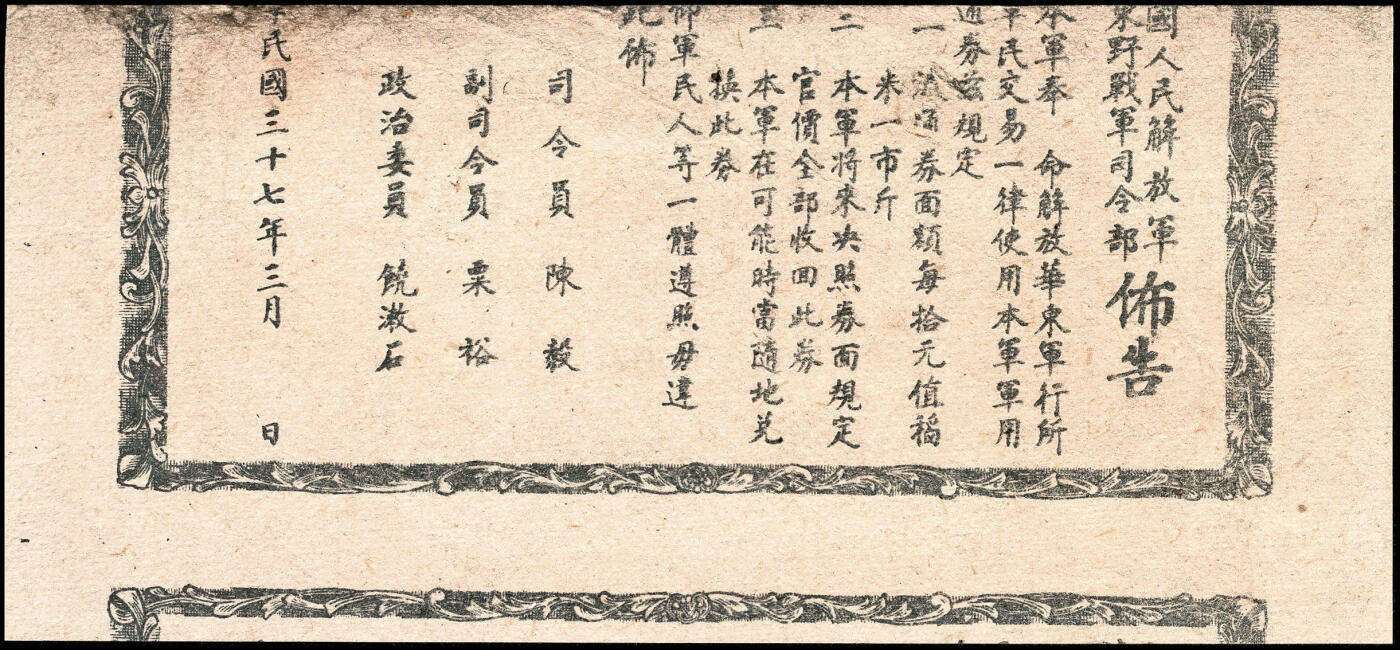 國人民解放軍
東野戰軍司令部
佈告
本軍奉 命解放華東軍行所
軍民交易一律使用本軍軍用
通券茲規定
一 流通券面額每拾元值稻
米一市斤
二 本軍將來决照券面規定
官價全部收回此券
三 本軍在可能時當隨地兌
換此券
仰軍民人等一體遵照毋違
此佈
司令員 陳毅
副司令員 粟裕
政治委員 饒漱石
民國三十七年三月 日